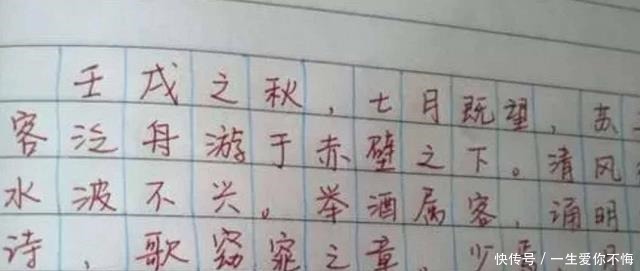 壬戌之秋，七月既望，苏
客泛舟游于赤壁之下。清风
水波不兴。举酒属客，诵明
诗，歌窈窕之章，少焉
快传号／一生爱你不悔